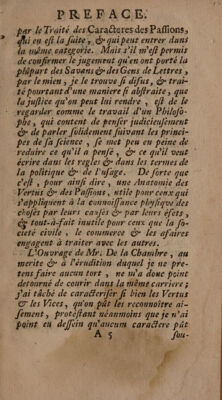 PREFACE.
par le Traité des Caracteres des Passions,
qui en est la suite, & qui peut entrer dans
la même categorie. Mais s'il m'est permis
de confirmer le jugement qu'en ont porté la
plûpart des Savans & des Gens de Lettres,
par le mien, je le trouve si difus, & trai-
té pourtant d'une maniere si abstraite, que
la justice qu'on peut lui rendre, est de le
regarder comme le travail d'un Philoso-
phe, qui content de penser judicieusement
& de parler solidement suivant les princi-
pes de sa science, se met peu en peine de
reduire ce qu'il a pensé, & ce qu'il veut
écrire dans les regles & dans les termes de
la politique & de l'usage. De sorte que
c'est, pour ainsi dire, une Anatomie des
Vertus & des Passions, utile pour ceux qui
s'appliquent à la connoissance physique des
choses par leurs causes & par leurs éfets,
& tout-à-fait inutile pour ceux que la so-
cieté civile, le commerce & les afaires
engagent à traiter avec les autres.
L'Ouvrage de Mr. De la Chambre, au
merite & à l'érudition duquel je ne pre-
tens faire aucun tort, ne m'a donc point
detourné de courir dans la même carriere;
j'ai tâché de caractériser si bien les Vertus
& les Vices, qu'on pût les reconnoître ai-
sement, protestant néanmoins que je n'ai
point eu dessein qu'aucum caractere pût
A 5 sou-